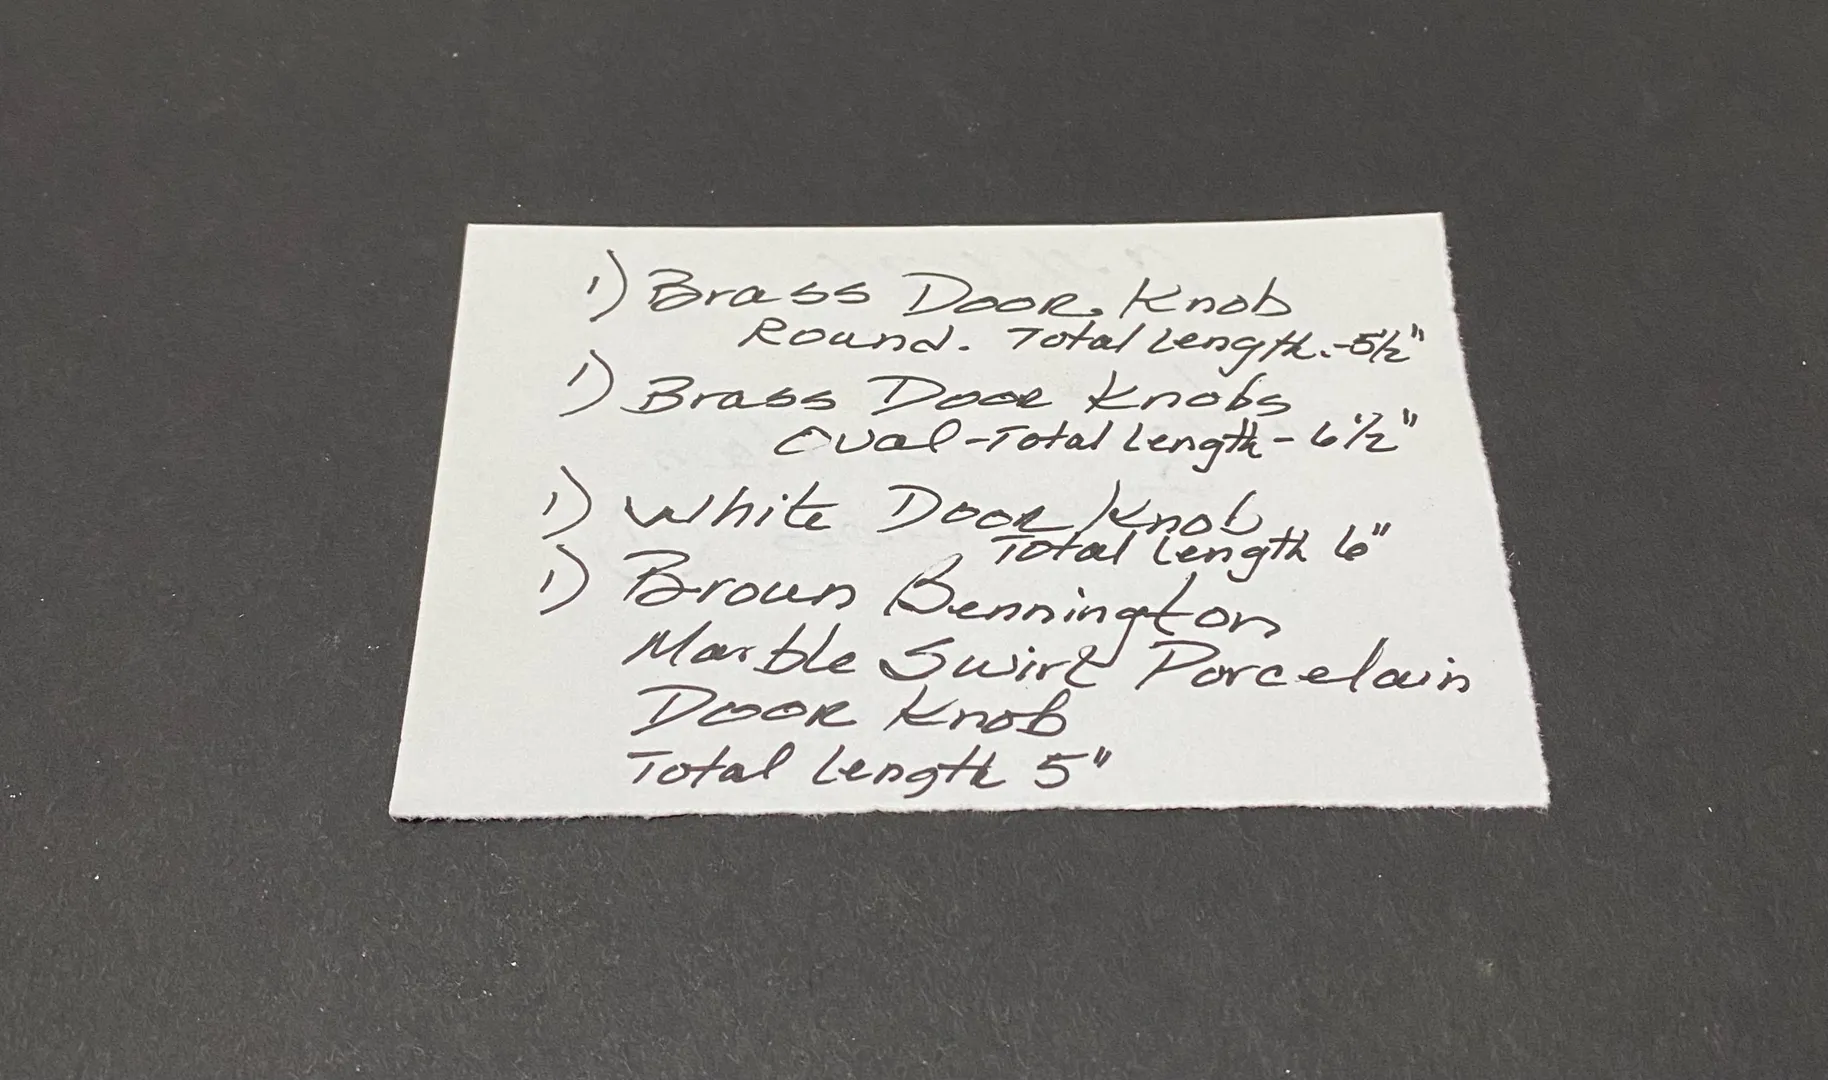 1) Brass Door Knob
Round. Total Length.-5½"
1) Brass Door Knobs
Oval-Total Length-6½"
1) White Door Knob
Total Length 6"
1) Brown Bennington
Marble Swirl Porcelain
Door Knob
Total Length 5"